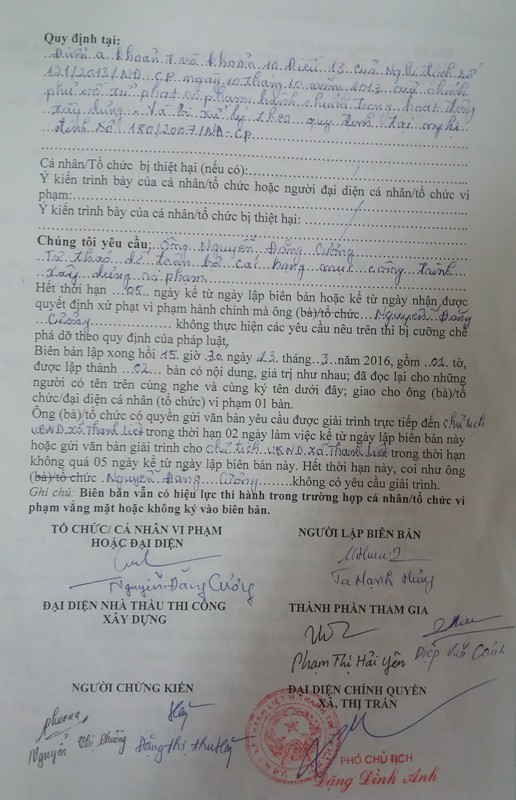 Quy định tại:
Điểm a khoản 7 và khoản 10 Điều 13 của Nghị định số
121/2013/NĐ-CP ngày 10 tháng 10 năm 2013 của chính
phủ về xử phạt vi phạm hành chính trong hoạt động
xây dựng. Và bị xử lý theo quy định tại nghị
định số 180/2007/NĐ-CP
Cá nhân/Tổ chức bị thiệt hại (nếu có): /
Ý kiến trình bày của cá nhân/tổ chức hoặc người đại diện cá nhân/tổ chức vi
phạm:
Ý kiến trình bày của cá nhân/tổ chức bị thiệt hại: /
Chúng tôi yêu cầu: Ông Nguyễn Đăng Cường
Tự tháo dỡ toàn bộ các hạng mục công trình
xây dựng vi phạm
Hết thời hạn 05 ngày kể từ ngày lập biên bản hoặc kể từ ngày nhận được
quyết định xử phạt vi phạm hành chính mà ông (bà)/tổ chức Nguyễn Đăng
Cường không thực hiện các yêu cầu nêu trên thì bị cưỡng chế
phá dỡ theo quy định của pháp luật,
Biên bản lập xong hồi 15 giờ 30 ngày 23 tháng 3 năm 2016, gồm 01 tờ,
được lập thành 02 bản có nội dung, giá trị như nhau; đã đọc lại cho những
người có tên trên cùng nghe và cùng ký tên dưới đây; giao cho ông (bà)/tổ
chức/đại diện cá nhân (tổ chức) vi phạm 01 bản.
Ông (bà)/tổ chức có quyền gửi văn bản yêu cầu được giải trình trực tiếp đến chủ tịch
UBND xã Thanh Liệt trong thời hạn 02 ngày làm việc kể từ ngày lập biên bản này
hoặc gửi văn bản giải trình cho chủ tịch UBND xã Thanh Liệt trong thời hạn
không quá 05 ngày kể từ ngày lập biên bản này. Hết thời hạn này, coi như ông
(bà)/tổ chức Nguyễn Đăng Cường không có yêu cầu giải trình.
Ghi chú: Biên bản vẫn có hiệu lực thi hành trong trường hợp cá nhân/tổ chức vi
phạm vắng mặt hoặc không ký vào biên bản.
TỔ CHỨC/ CÁ NHÂN VI PHẠM
HOẶC ĐẠI DIỆN
NGƯỜI LẬP BIÊN BẢN
Nguyễn Đăng Cường
Tạ Mạnh Hùng
ĐẠI DIỆN NHÀ THẦU THI CÔNG
XÂY DỰNG
THÀNH PHẦN THAM GIA
Phạm Thị Hải Yến
NGƯỜI CHỨNG KIẾN
ĐẠI DIỆN CHÍNH QUYỀN
XÃ, THỊ TRẤN
Phương
Nguyễn Thị Phương
Đặng Thị Thu
PHÓ CHỦ TỊCH
Đặng Đình Anh